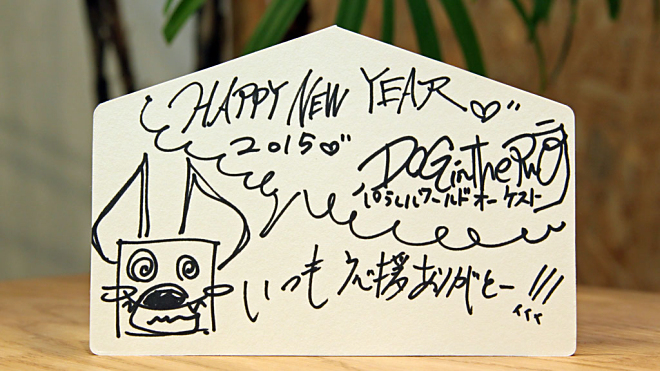 HAPPY NEW YEAR♡
2015♡
DOG inThe PWO
パラレルワールドオーケストラ
いつも応援ありがとー!!!